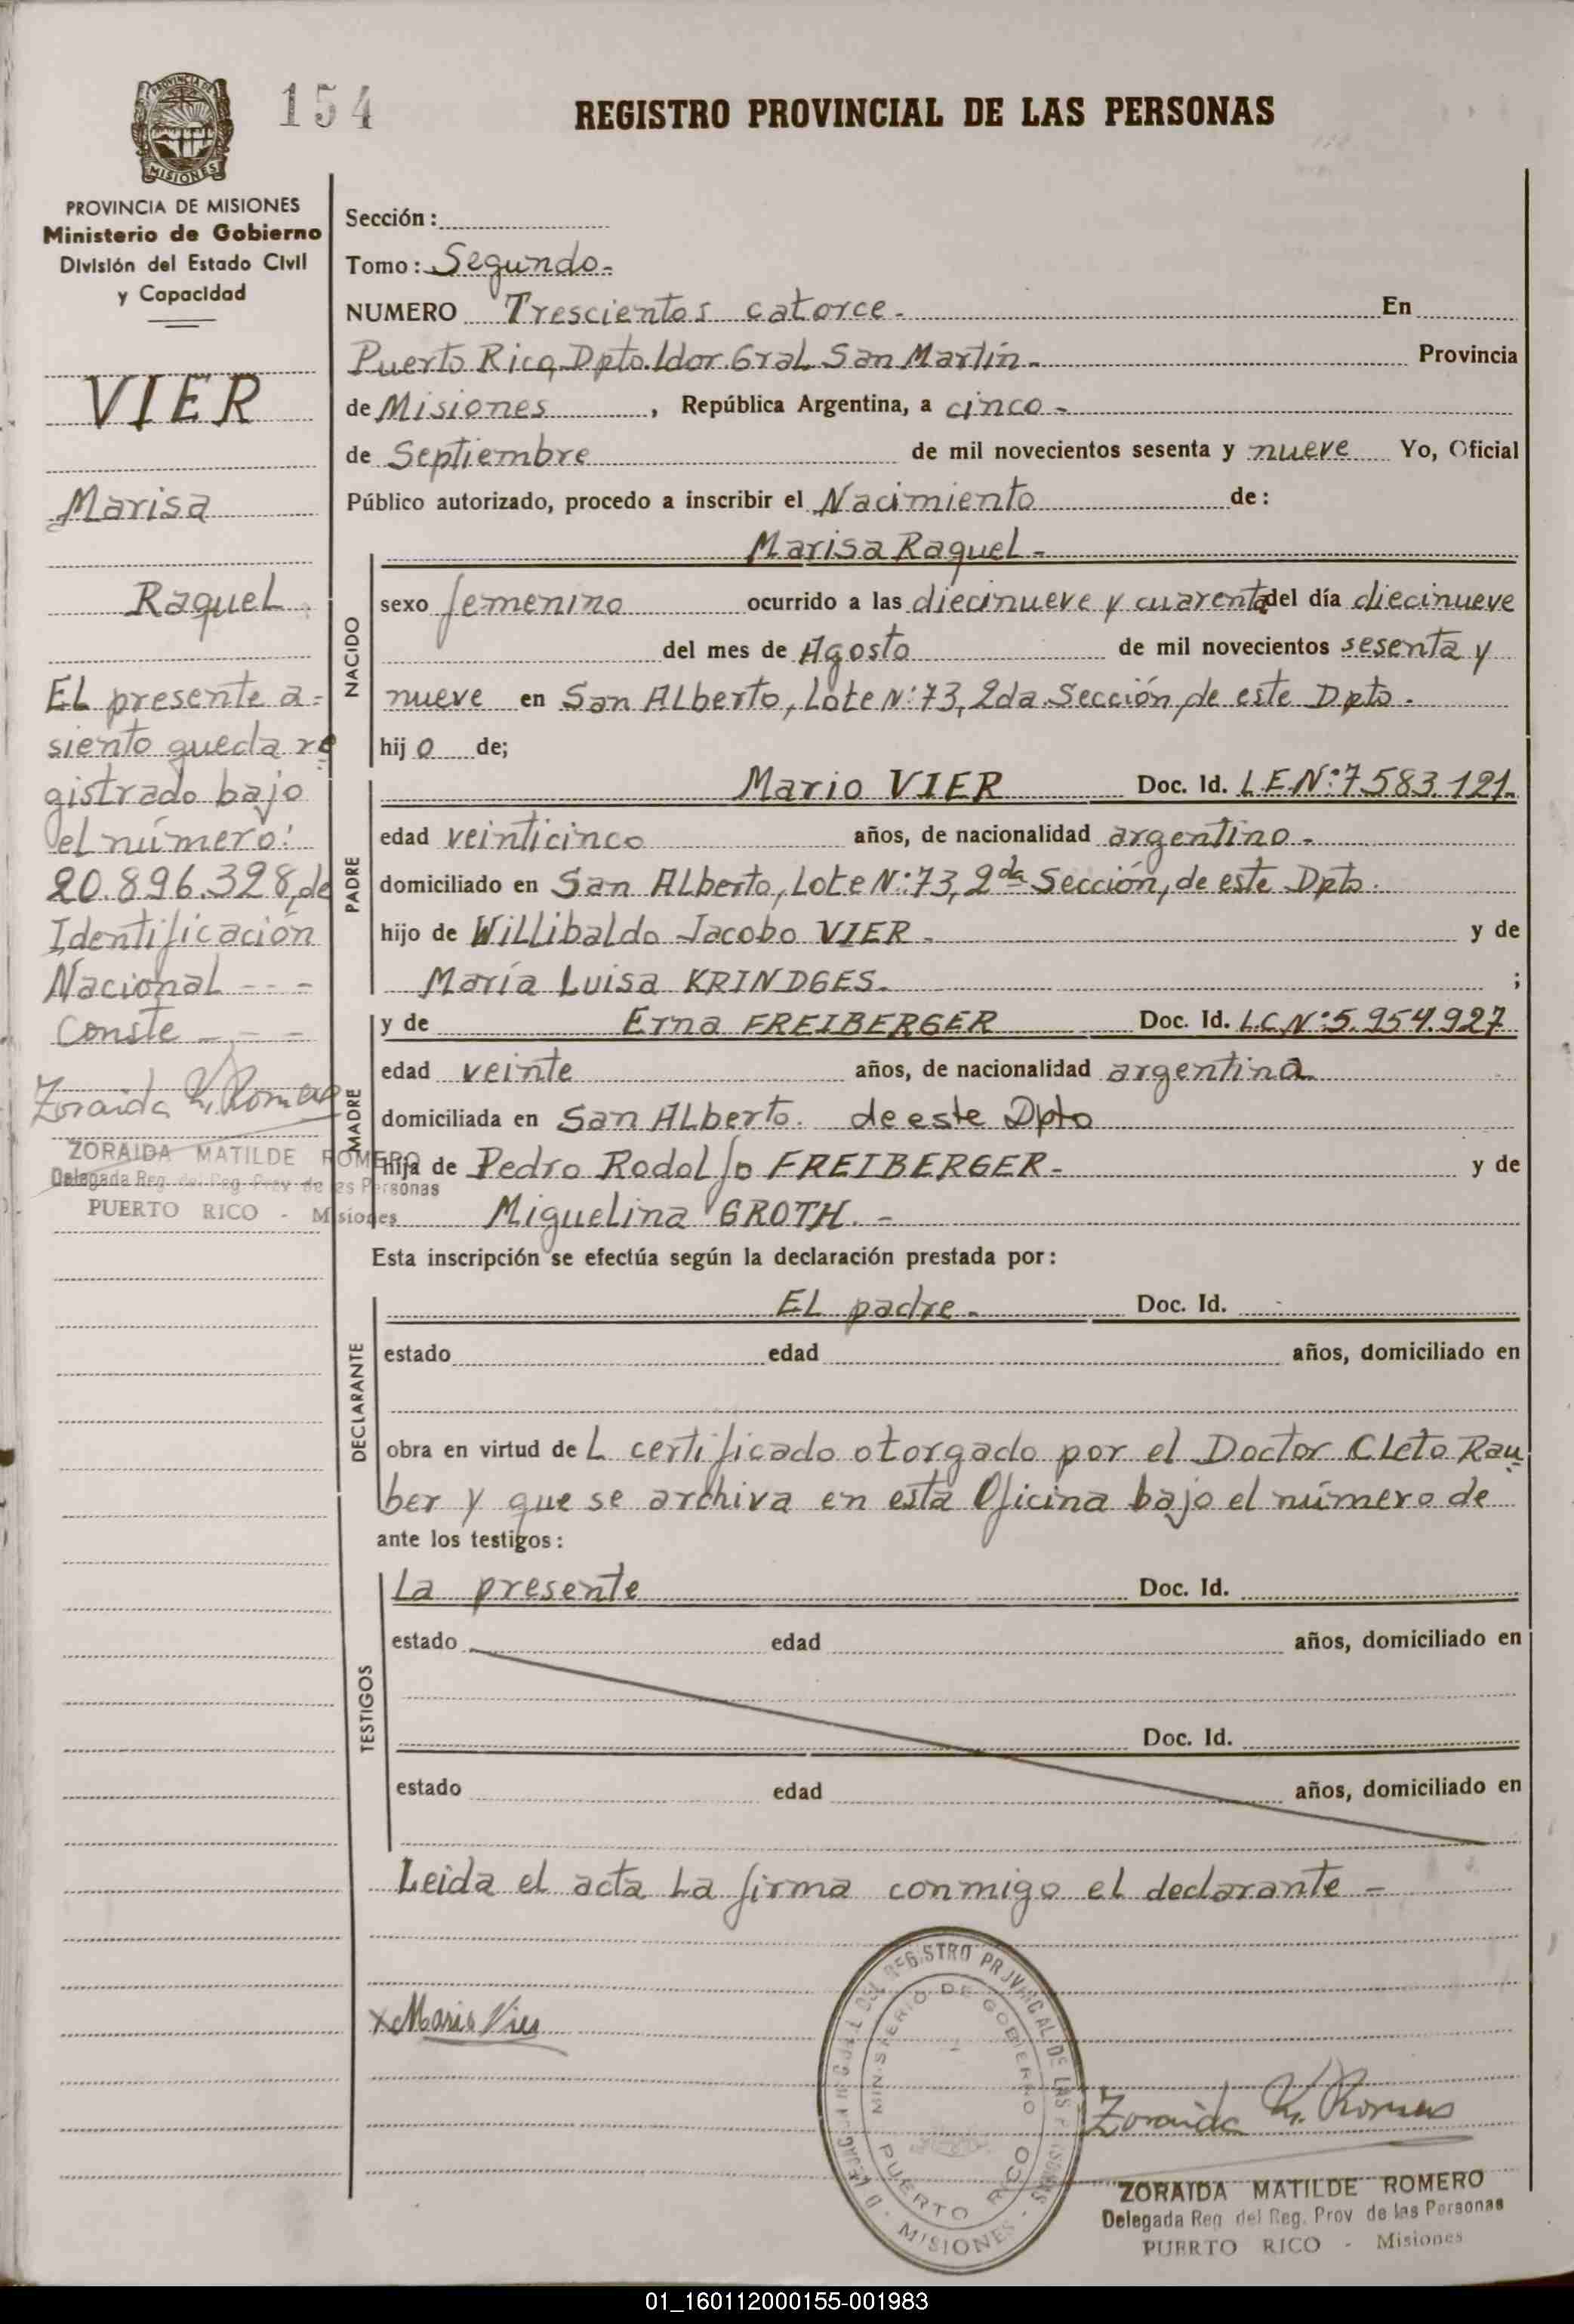 154
REGISTRO PROVINCIAL DE LAS PERSONAS
PROVINCIA DE
MISIONES
PROVINCIA DE MISIONES
Ministerio de Gobierno
División del Estado Civil
y Capacidad
VIER
Marisa
Raquel
El presente a-
siento queda re
gistrado bajo
el número:
20.896.328, de
Identificación
Nacional - - -
Conste - - -
Zoraida M. Romero
ZORAIDA MATILDE ROMERO
Delegada Reg. del Reg. Prov. de las Personas
PUERTO RICO - Misiones
Sección:
Tomo: Segundo.-
NUMERO Trescientos catorce.- En
Puerto Rico, Dpto. Ldor. Gral San Martín.- Provincia
de Misiones, República Argentina, a cinco.-
de Septiembre de mil novecientos sesenta y nueve Yo, Oficial
Público autorizado, procedo a inscribir el Nacimiento de:
Marisa Raquel.-
NACIDO
sexo femenino ocurrido a las diecinueve y cuarenta del día diecinueve
del mes de Agosto de mil novecientos sesenta y
nueve en San Alberto, Lote N: 73, 2da Sección, de este Dpto.-
hijo de;
PADRE
Mario VIER Doc. Id. L.E.N: 7.583.121.-
edad veinticinco años, de nacionalidad argentino.-
domiciliado en San Alberto, Lote N: 73, 2da Sección, de este Dpto.
hijo de Willibaldo Jacobo VIER.- y de
María Luisa KRINDGES.- ;
MADRE
y de Erna FREIBERGER Doc. Id. L.C.N: 5.954.927
edad veinte años, de nacionalidad argentina
domiciliada en San Alberto. de este Dpto
hija de Pedro Rodolfo FREIBERGER.- y de
Miguelina GROTH.-
Esta inscripción se efectúa según la declaración prestada por:
DECLARANTE
El padre.- Doc. Id.
estado edad años, domiciliado en
obra en virtud del certificado otorgado por el Doctor Cleto Rau-
ber y que se archiva en esta Oficina bajo el número de
ante los testigos:
TESTIGOS
La presente Doc. Id.
estado edad años, domiciliado en
Doc. Id.
estado edad años, domiciliado en
Leida el acta la firma conmigo el declarante.-
x Mario Vier
DEL REGISTRO PROVINCIAL DE LAS PERSONAS
MINISTERIO DE GOBIERNO
PUERTO RICO
- MISIONES -
Zoraida M. Romero
ZORAIDA MATILDE ROMERO
Delegada Reg. del Reg. Prov de las Personas
PUERTO RICO - Misiones
01_160112000155-001983